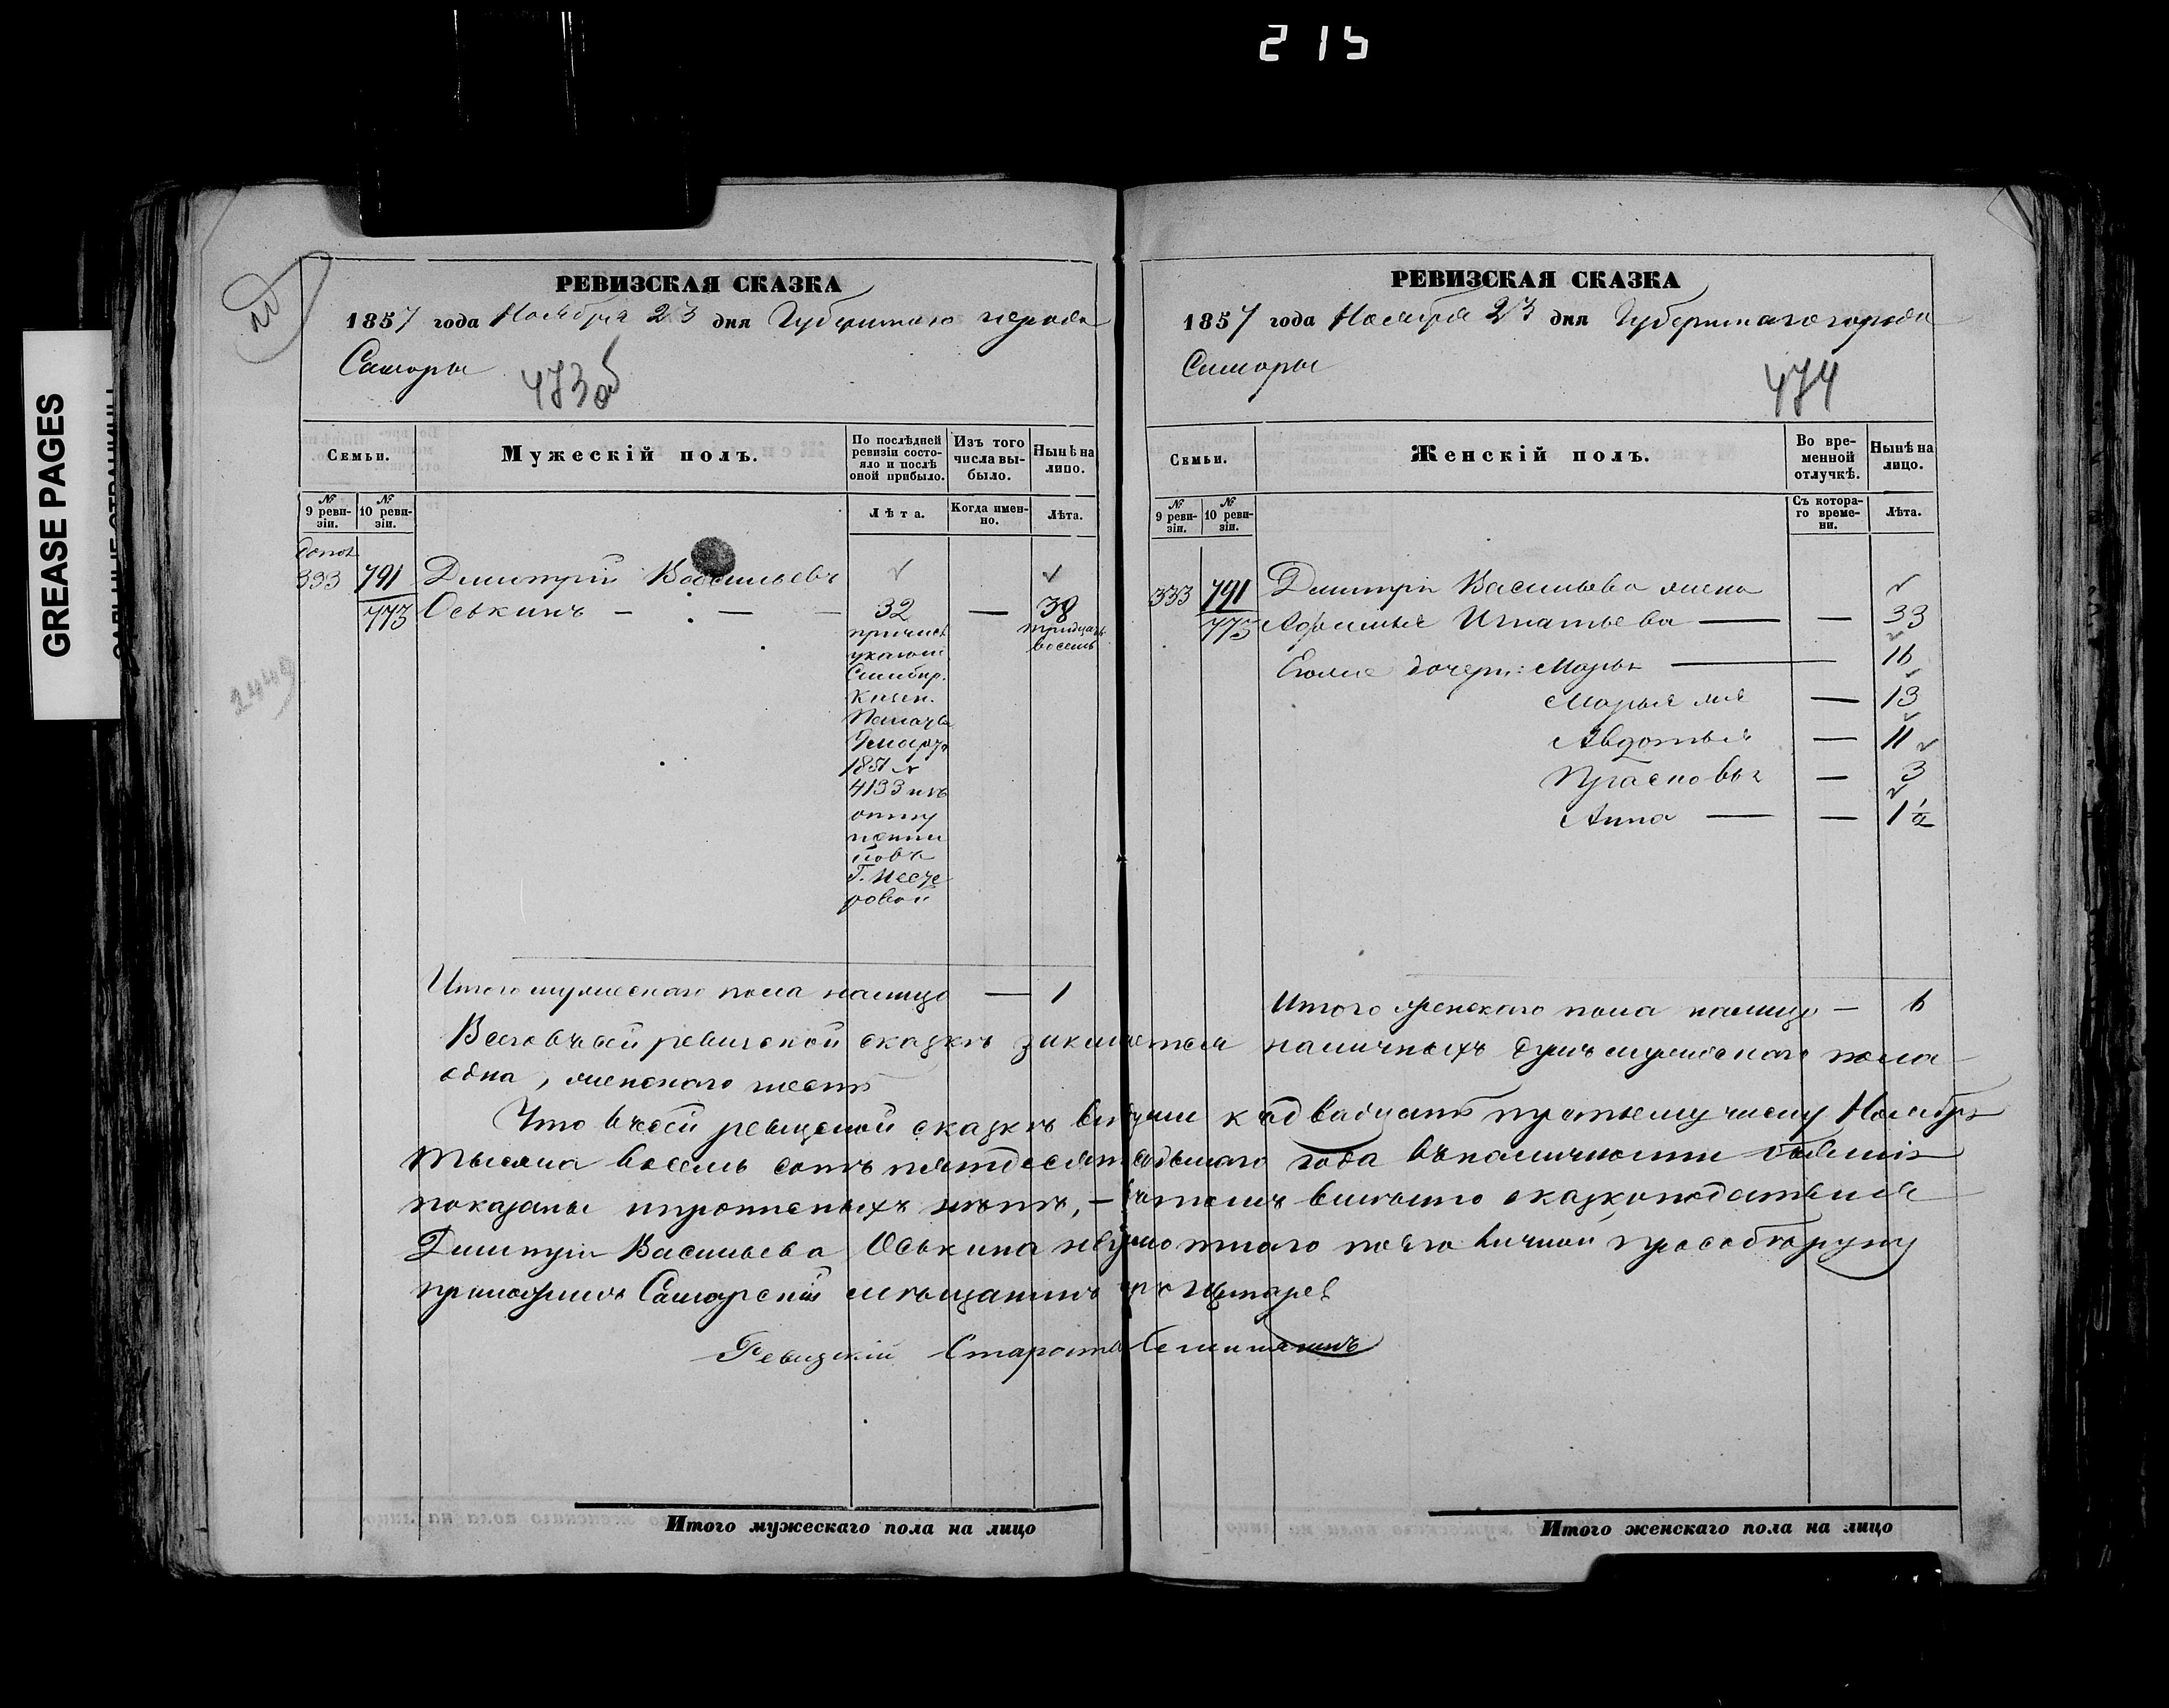 215
GREASE PAGES
РЕВИЗСКАЯ СКАЗКА
1857 года Ноября 23 дня Губернскаго города
Самары
473 об
Семьи.
Мужескій полъ.
По послѣдней ревизіи состояло и послѣ оной прибыло.
Изъ того числа выбыло.
Нынѣ на лицо.
№ 9 ревизіи.
№ 10 ревизіи.
Лѣта.
Когда именно.
Лѣта.
333 791 Дмитрій Васильевъ
773 Оськинъ — — — 32 — 38
причисл тридцать
указом восемь
Симбир.
Казен.
Палаты
1851 №
4133 изъ
отпу
щенни
ковъ
Г.
ровой
Итого мужескаго пола налицо — 1
РЕВИЗСКАЯ СКАЗКА
1857 года Ноября 23 дня Губернскаго города
Самары
474
Семьи.
Женскій полъ.
Во временной отлучкѣ.
Нынѣ на лицо.
№ 9 ревизіи.
№ 10 ревизіи.
Съ котораго времени.
Лѣта.
333 791 Дмитрія Васильева жена
773 Игнатьева — — 33
дочери: Марья — 16
Марья — 13
Авдотья — 11
Прасковья — 3
Анна — — 1½
Итого женскаго пола налицо — 6
Всего въ сей ревизской сказкѣ наличныхъ душъ мужескаго пола
одна, женскаго шесть
Что въ сей ревизской сказкѣ къ двадцать третьему числу Ноября
Тысяча восемь сотъ пятдесятъ седьмаго года въ наличности
показаны и пропискныхъ нѣтъ, — въ томъ вмѣсто сказкоподателя
Дмитрія Васильева Оськина неграмотнаго по его личной прозьбѣ руку
приложилъ Самарскій мѣщанинъ
Ревизскій Староста
Итого мужескаго пола на лицо
Итого женскаго пола на лицо